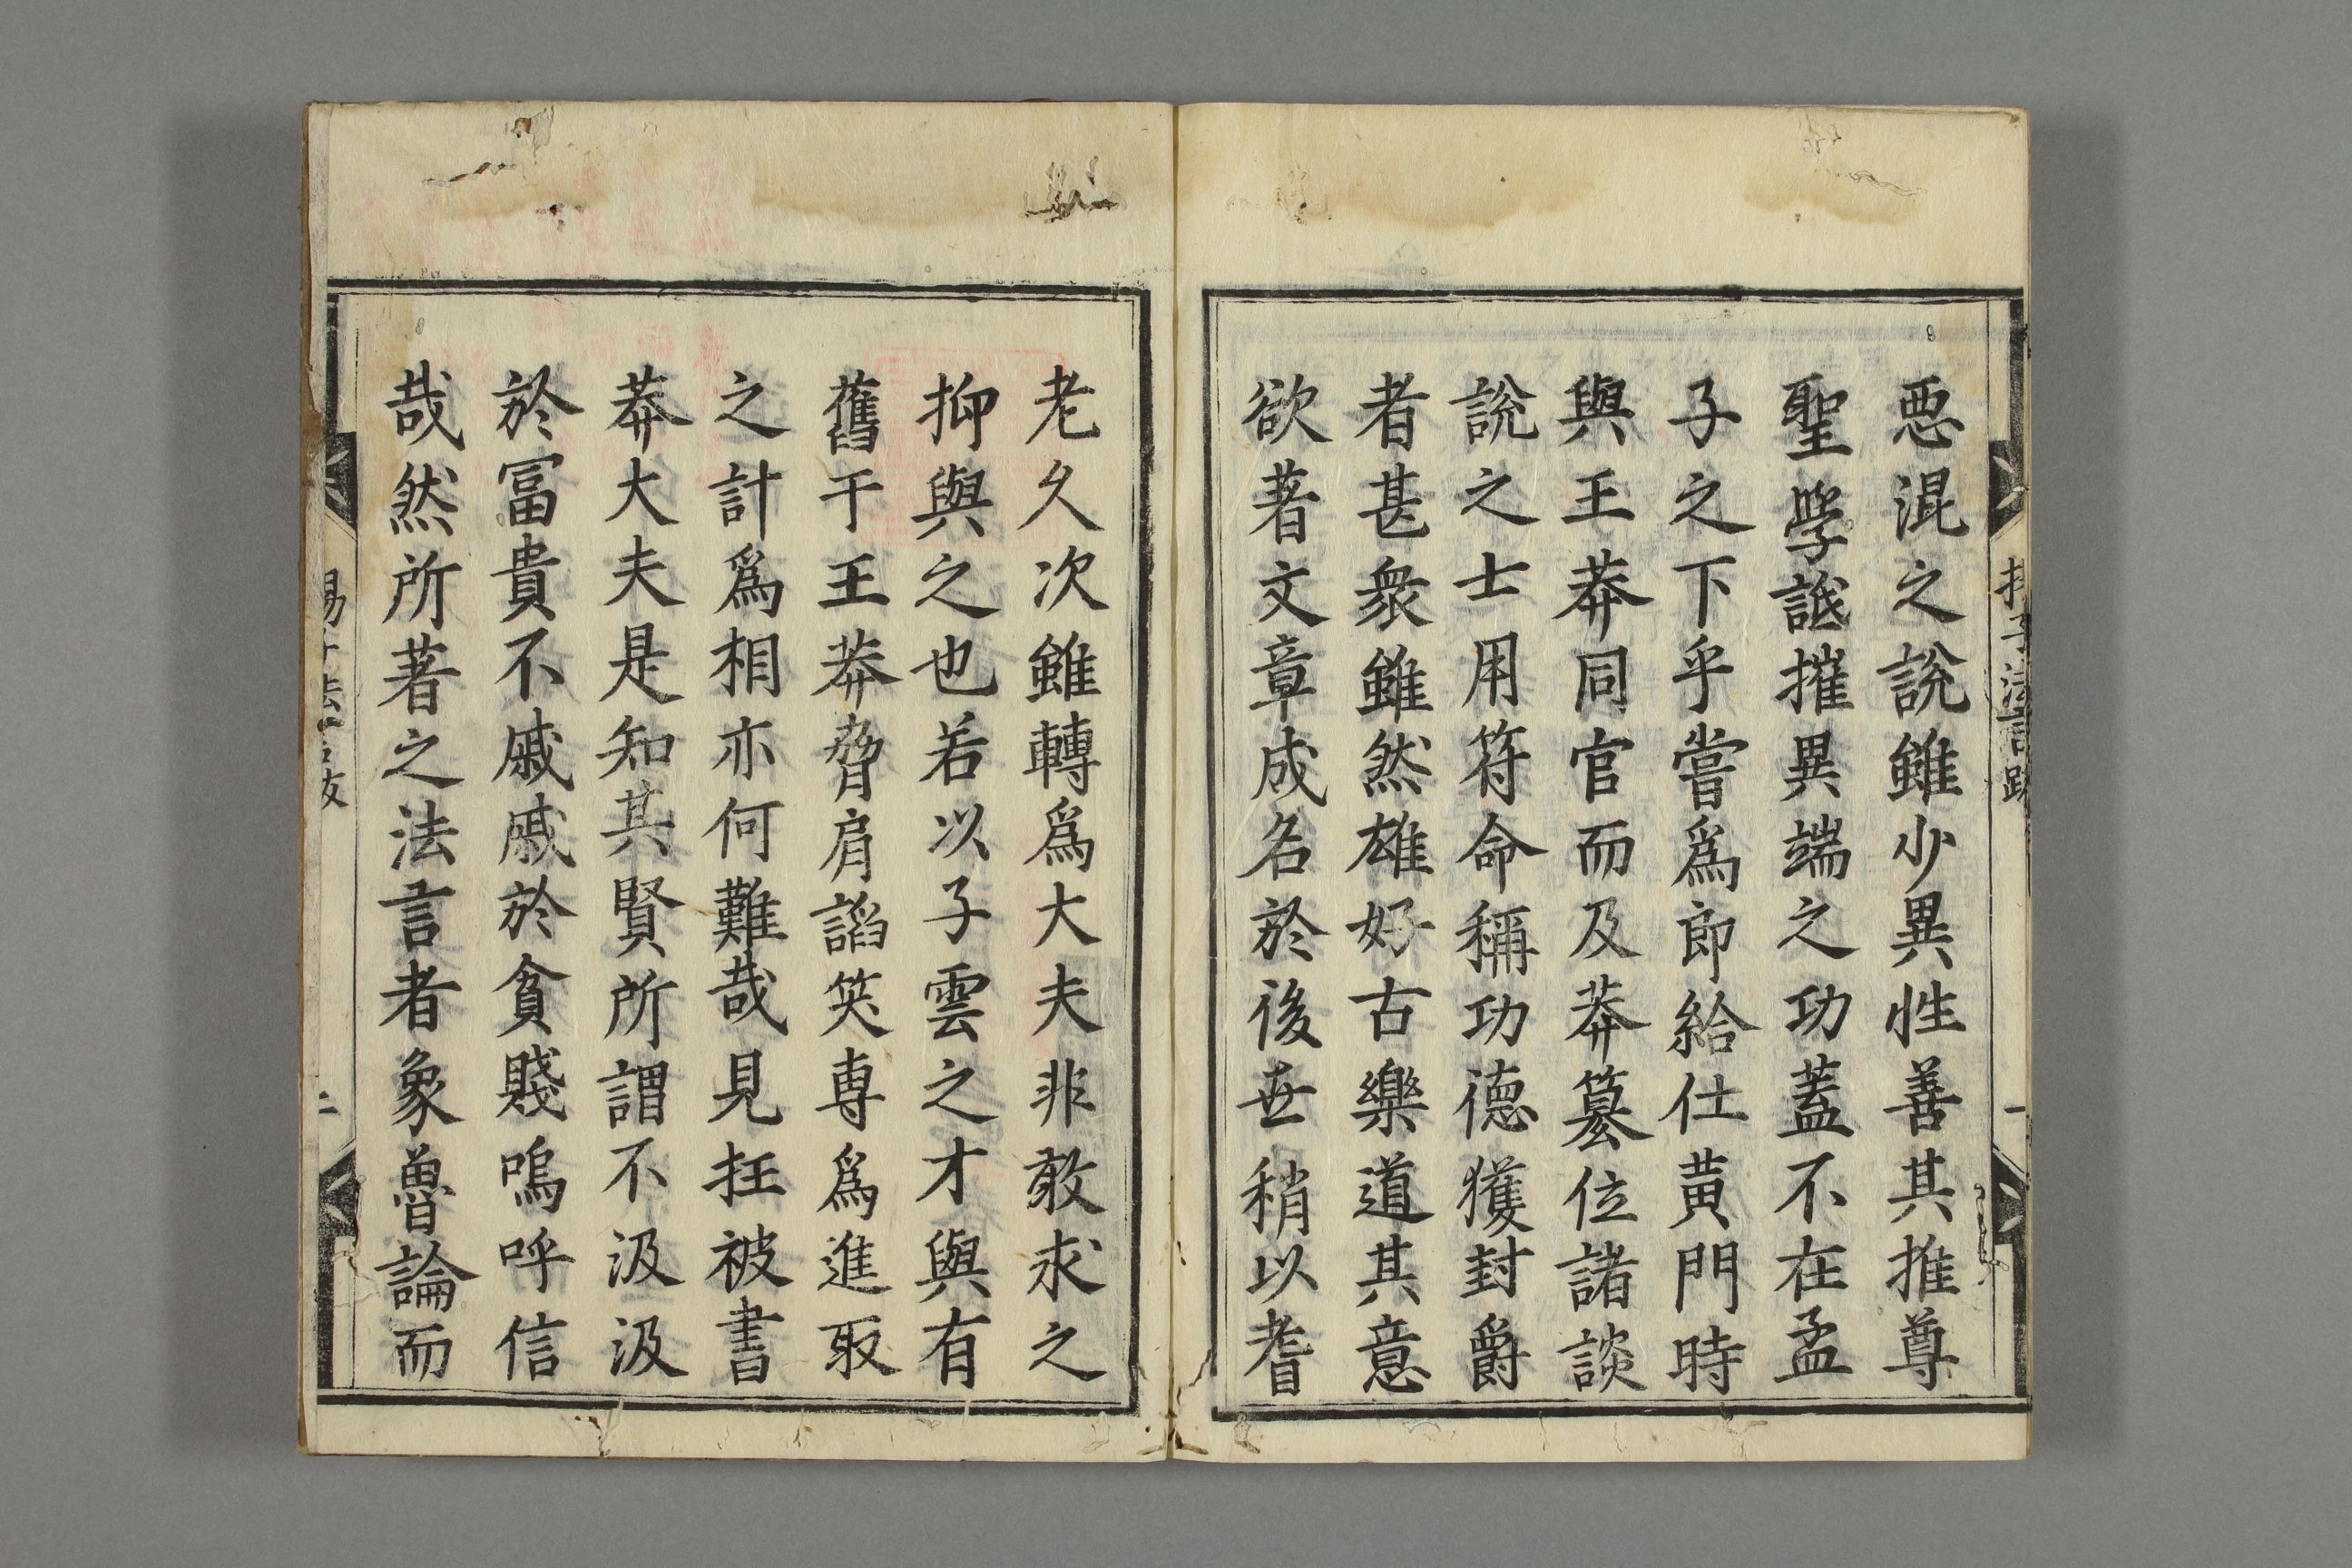 悪混之說雖少異性善其推尊
聖學詆摧異端之功蓋不在孟
子之下乎嘗爲郎給仕黄門時
與王莽同官而及莽篡位諸談
說之士用符命稱功德獲封爵
者甚衆雖然雄好古樂道其意
欲著文章成名於後世稍以耆
老久次雖轉爲大夫非敢求之
抑與之也若以子雲之才與有
舊于王莽脅肩謟笑專爲進取
之計爲相亦何難哉見抂被書
莽大夫是知其賢所謂不汲汲
於冨貴不戚戚於貧賤嗚呼信
哉然所著之法言者象魯論而